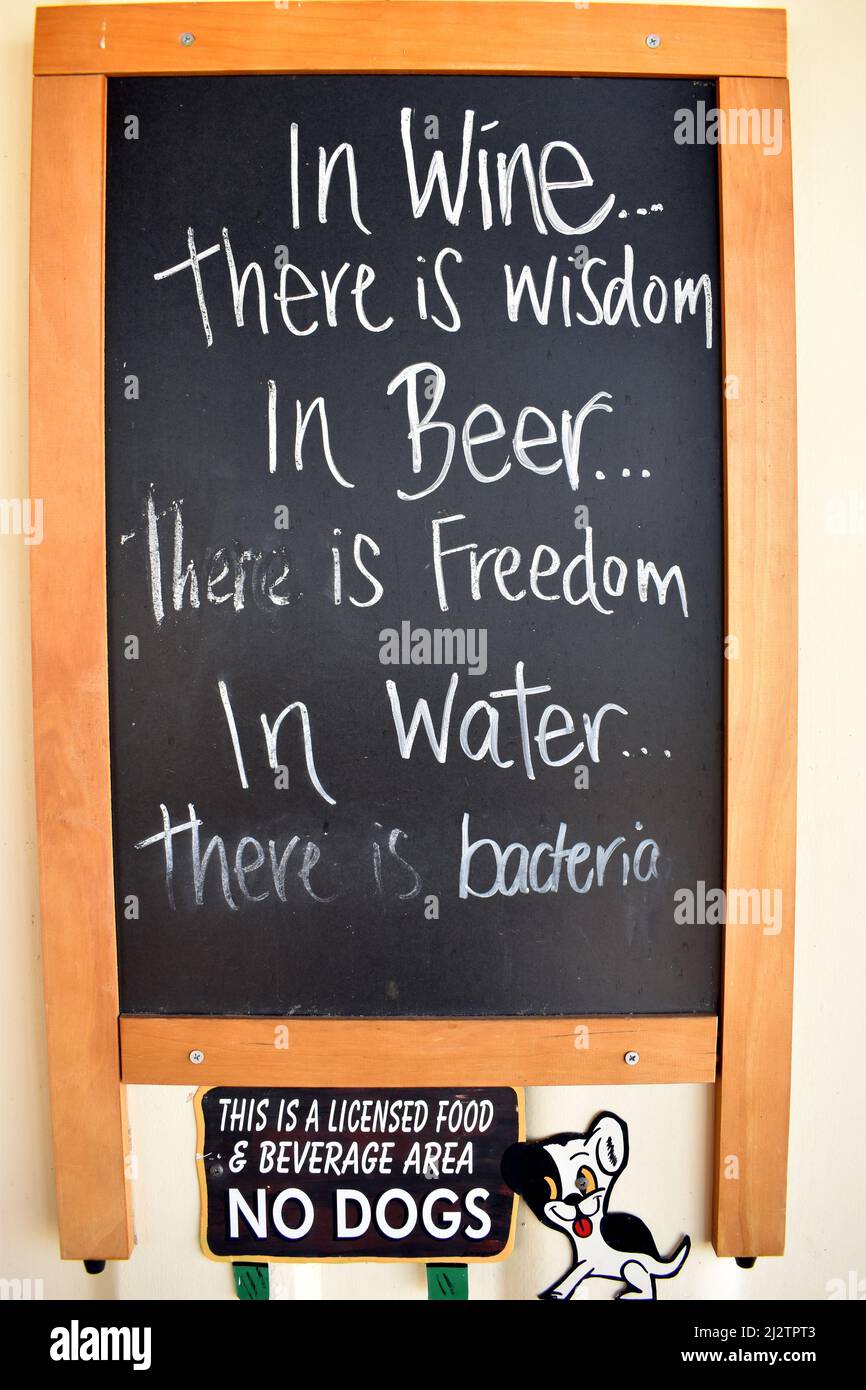 In Wine...
There is wisdom
In Beer...
There is Freedom
In Water...
there is bacteria
THIS IS A LICENSED FOOD
& BEVERAGE AREA
NO DOGS
alamy
Image ID: 2J2TPT3
www.alamy.com